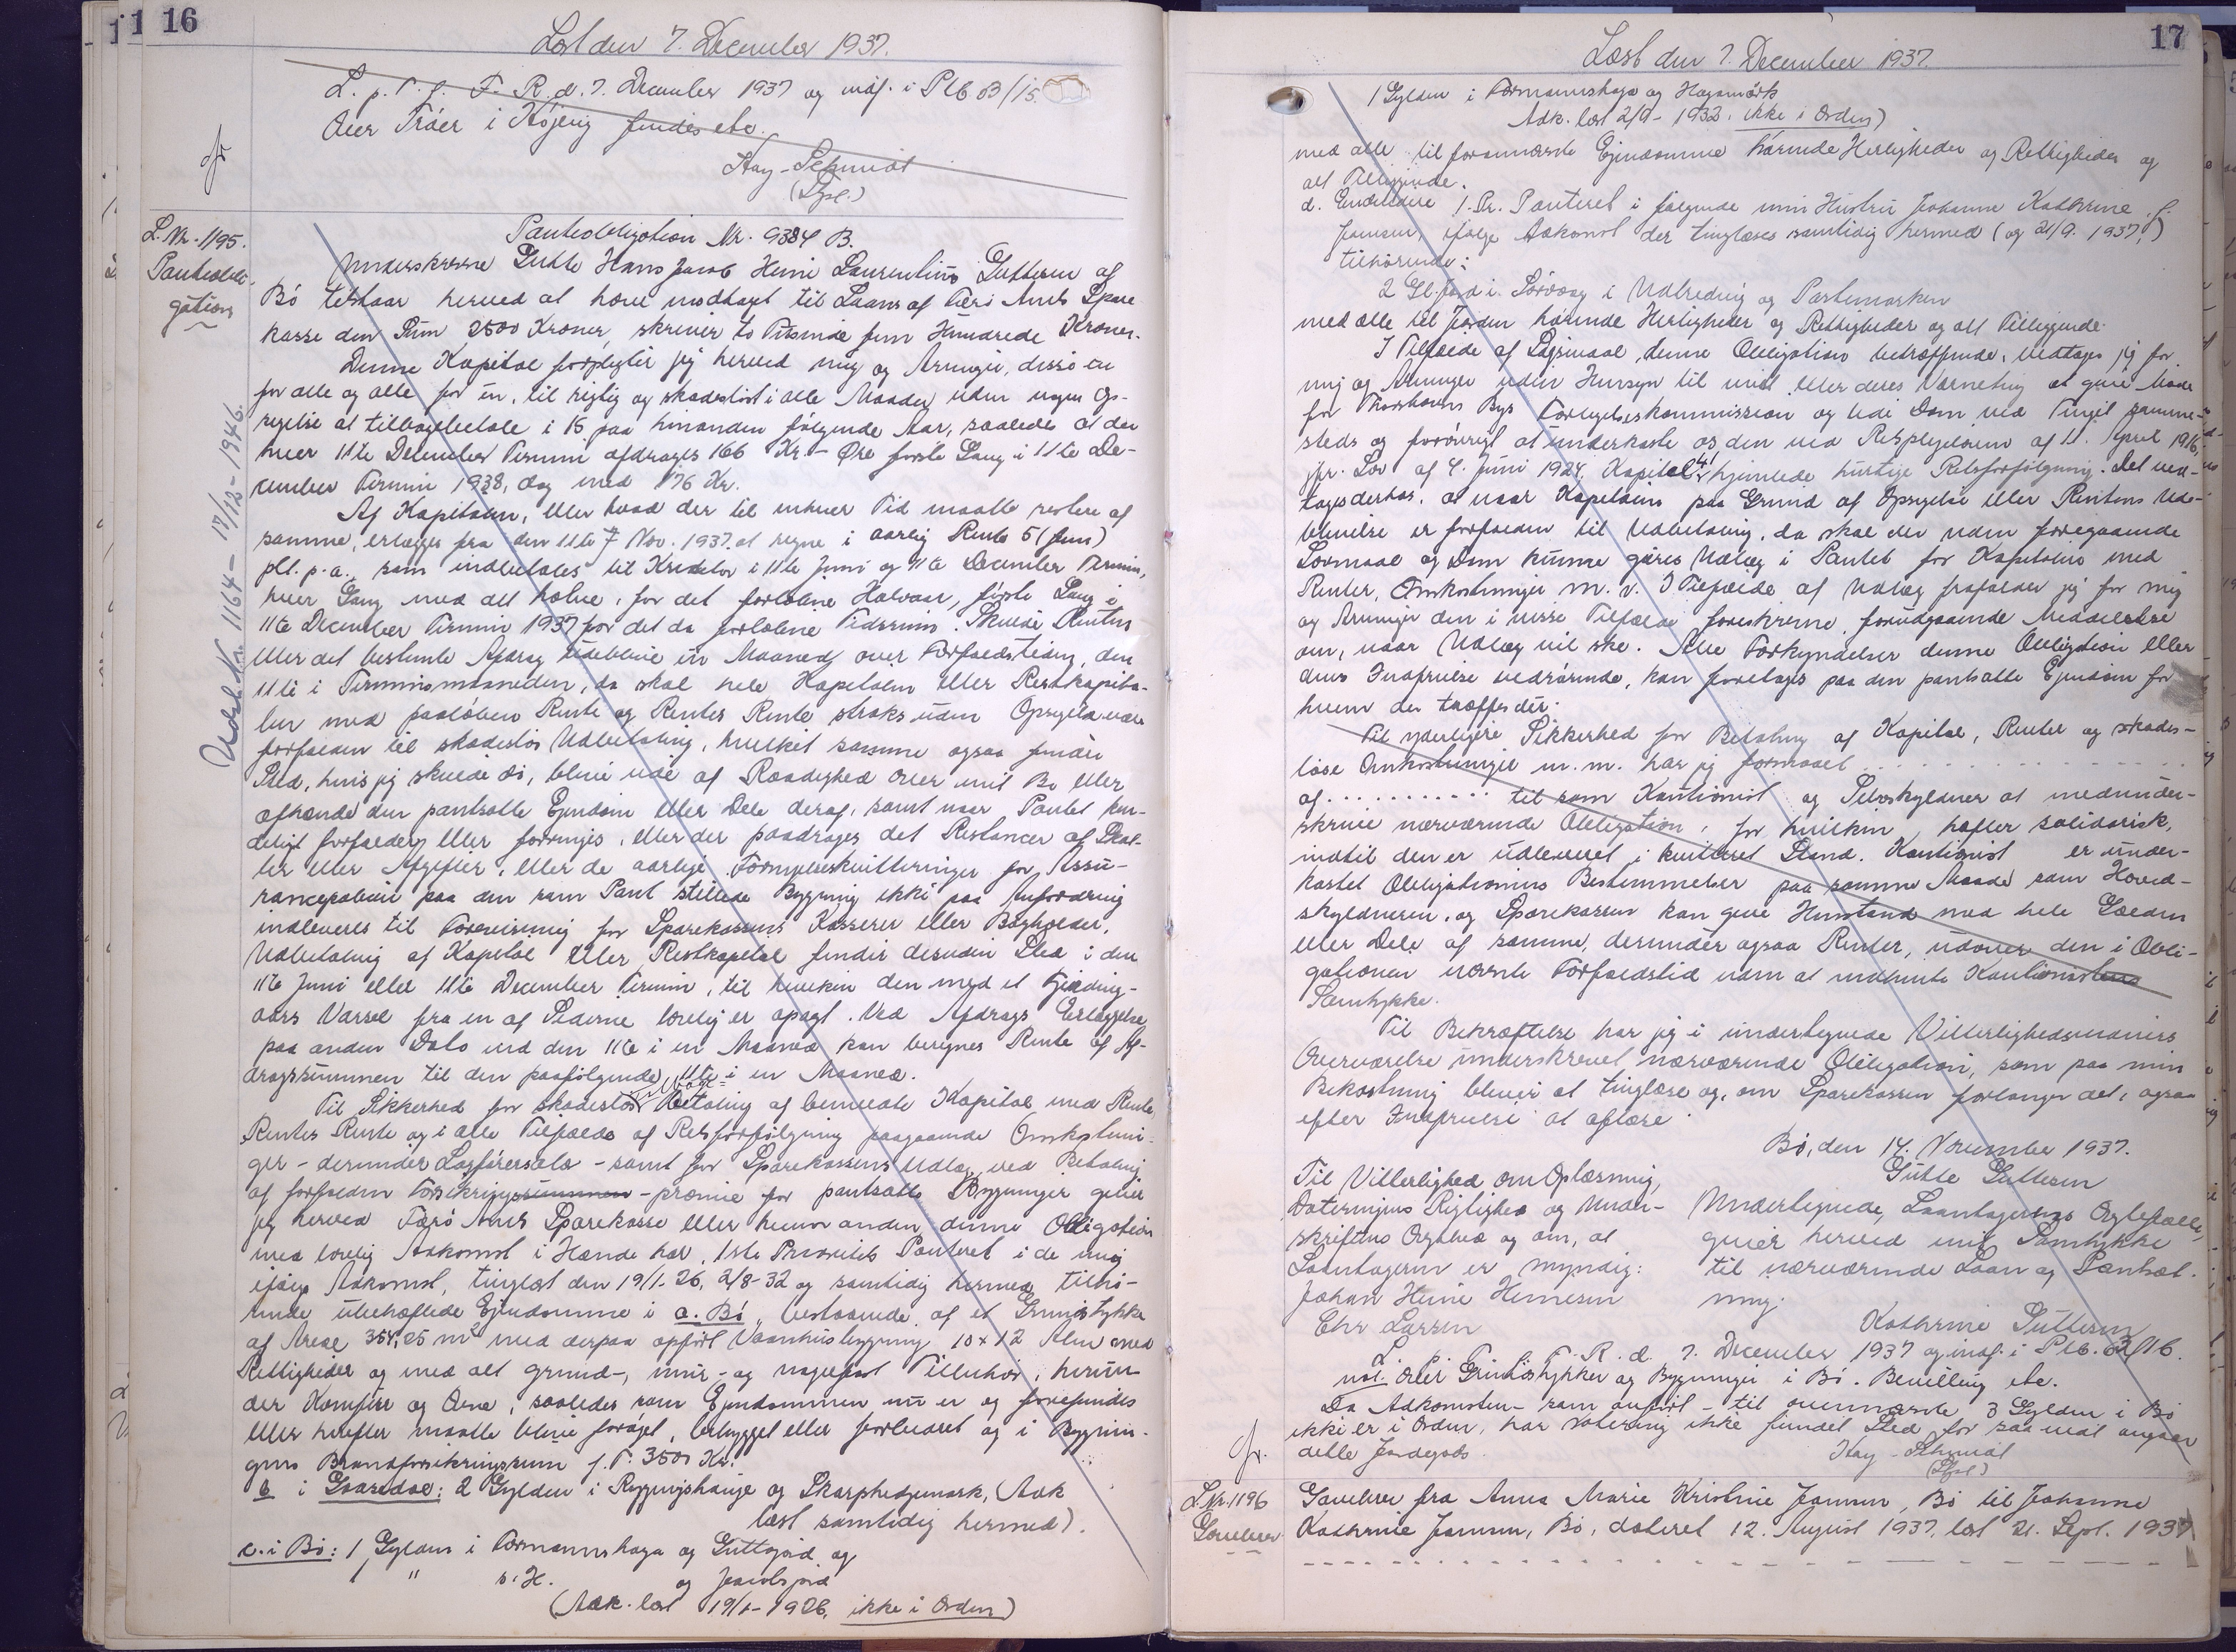 16
Læst den 7. December 1937.
L. p. T. f. F. R. d. 7. December 1937 og indf. i Plb B/15.
Over Tróer i Kójerig findes etc.
Hay-Schmidt
(Lgsf.)
L. Nr. 1195.
Pantobli-
gation
Udsl. Nr. 1164 - 17/12 - 1946.
Pantobligation Nr. 9384 B.
Underskrevne Gutte Hans Jacob Heini Laurentius Guttesen af
Bó tilstaar herved at have modtaget til Laans af Færø Amts Spare
kasse den Sum 2500 Kroner, skriver to Tusinde fem Hundrede Kroner.
Denne Kapital forpligter jeg herved mig og Arvinger, disse en
for alle og alle for én, til rigtig og skadesløst i alle Maader uden nogen Op-
sigelse at tilbagebetale i 15 paa hinanden følgende Aar, saaledes at der
hver 11te December Termin afdrages 166 Kr. - Øre første Gang i 11te De-
cember Termin 1938, dog med 176 Kr.
Af Kapitalen, eller hvad der til enhver Tid maatte restere af
samme, erlægges fra den 11te 7 Nov. 1937. at regne i aarlig Rente 5 (fem)
pCt. p. a., som indbetales til Kreditor i 11te Juni og 11te December Termin,
hver Gang med det halve, for det forløbne Halvaar, første Gang i
11te December Termin 1937 for det da forløbne Tidsrum. Skulde Renten
eller det bestemte Afdrag udeblive en Maaned over Forfaldstiden, den
11te i Terminsmaaneden, da skal hele Kapitalen eller Restkapita-
len med paaløben Rente og Renters Rente straks uden Opsigelse være
forfalden til skadesløs Udbetaling, hvilket samme ogsaa finder
Sted, hvis jeg skulde dø, blive ude af Raadighed over mit Bo eller
afhænde den pantsatte Ejendom eller Dele deraf, samt naar Pantet ken-
deligt forfalder eller forringes, eller der paadrages det Restancer af Skat-
ter eller Afgifter, eller de aarlige Fornyelseskvitteringer for Assu-
rancepolicen paa den som Pant stillede Bygning ikke paa Anfordring
indleveres til Forevisning for Sparekassens Kasserer eller Bogholder,
Udbetaling af Kapital eller Restkapital finder desuden Sted i den
11te Juni eller 11te December Termin, til hvilken den med et Fjerding-
aars Varsel fra en af Siderne lovlig er opsagt. Ved Afdrags Erlæggelse
paa anden Dato end den 11te i en Maaned kan beregnes Rente af Af-
dragssummen til den paafølgende 11te i en Maaned.
Til Sikkerhed for skadesløs Betaling af bemeldte Kapital med Rente
Renters Rente og i alle Tilfælde af Retsforfølgning paagaaende Omkostnin-
ger - derunder Sagførersalær - samt for Sparekassens Udlæg ved Betaling
af forfalden Forsikringssummen - præmie for pantsatte Bygninger giver
jeg herved Færø Amts Sparekasse eller hvem anden denne Obligation
med lovlig Adkomst i Hænde har, 1ste Prioritets Panteret i de mig
ifølge Adkomst, tinglæst den 19/1-26, 2/8-32 og samtidig hermed tilhø-
rende ubehæftede Ejendomme i a. Bó, bestaaende af et Grundstykke
af Areal 354,25 m² med derpaa opført Vaanhusbygning 10 x 12 Alen med
Rettigheder og med alt grund-, mur- og nagelfast Tilbehør, herun-
der Komfur og Ovne, saaledes som Ejendommen nu er og forefindes
eller herefter maatte blive forøget, bebygget eller forbedret og i Bygnin-
gens Brandforsikringssum f. T. 3500 Kr.
b i Gaasedal: 2 Gylden i Rygningshauge og Skarphedjemark, (Adk
læst samtidig hermed).
c. i Bó: 1 Gylden i Formannshaga og Guttogjord og
1 " s. H. og Jacobsjord
(Adk. læst 19/1-1926, ikke i Orden)
17
Læst den 7. December 1937.
1 Gylden i Formannshaga og Hagamørk
Adk. læst 2/9 - 1932. ikke i Orden)
med alle til forannævnte Ejendomme hørende Herligheder og Rettigheder og
alt Tilliggende.
d. Endvidere 1. Pr. Panteret i følgende min Hustru Johanne Kathrine f.
Joensen, ifølge Adkomst der tinglæses samtidig hermed (og 21/9. 1937,)
tilhørende:
2 Gl. Jord i Sørvaag i Udbredning og Partemarken
med alle til Jorden hørende Herligheder og Rettigheder og alt Tilliggende.
I Tilfælde af Søgsmaal denne Obligation betræffende, vedtager jeg for
mig og Arvinger uden Hensyn til mit eller deres Værneting at give Møde
for Thorshavns Bys Forligelseskommission og lide Dom ved Tinget samme-
steds og forøvrigt at underkaste os den ved Retsplejeloven af 11. April 1916,
jfr. Lov af 4. Juni 1924, Kapitel 41 hjemlede hurtige Retsforfølgning. Det ved-
tages derhos, at naar Kapitalen paa Grund af Opsigelse eller Rentens Ude-
blivelse er forfalden til Udbetaling, da skal der uden foregaaende
Lovmaal og Dom kunne gøres Udlæg i Pantet for Kapitalen med
Renter, Omkostninger m. v. I Tilfælde af Udlæg frafalder jeg for mig
og Arvinger den i visse Tilfælde foreskrevne forudgaaende Meddelelse
om, naar Udlæg vil ske. Alle Forkyndelser denne Obligation eller
dens Indfrielse vedrørende, kan foretages paa den pantsatte Ejendom for
hvem der træffes dér.
Til yderligere Sikkerhed for Betaling af Kapital, Renter og skades-
løse Omkostninger m. m. har jeg formaaet . . . . . . . . . .
af . . . . . . . . . . til som Kautionist og Selvskyldner at medunder-
skrive nærværende Obligation, for hvilken hæfter solidarisk,
indtil den er udleveret i kvitteret Stand. Kautionist er under-
kastet Obligationens Bestemmelser paa samme Maade som Hoved-
skyldneren, og Sparekassen kan give Henstand med hele Gælden
eller Dele af samme, derunder ogsaa Renter, udover den i Obli-
gationen nævnte Forfaldstid uden at indhente Kautionistens
Samtykke.
Til Bekræftelse har jeg i undertegnede Vitterlighedsvidners
Overværelse underskrevet nærværende Obligation, som paa min
Bekostning bliver at tinglæse og, om Sparekassen forlanger det, ogsaa
efter Indfrielse at aflæse.
Bó, den 14. November 1937.
Gutte Guttesen
Til Vitterlighed om Oplæsning,
Dateringens Rigtighed og Under-
skriftens Ægthed og om, at
Laantageren er myndig:
Johan Heine Heinesen
Chr Larsen
Undertegnede, Laantagerens Ægtefælle,
giver herved mit Samtykke
til nærværende Laan og Pantsæt-
ning.
Kathrine Guttesen
L. p. T. f. F. R. d. 7. December 1937 og indf. i Plb. B/16.
ud. over Grundstykker og Bygninger i Bó. Bevilling etc.
Da Adkomsten - som anført - til ovennævnte 3 Gylden i Bó
ikke er i Orden, har Notering ikke fundet Sted for saa vidt angaar
dette Jordegods.
Hay-Schmidt
(Lgsf.)
L. Nr. 1196
Gavebrev
Gavebrev fra Anna Marie Kristine Joensen, Bó til Johanne
Kathrine Joensen, Bó, dateret 12. August 1937, læst 21. Sept. 1937